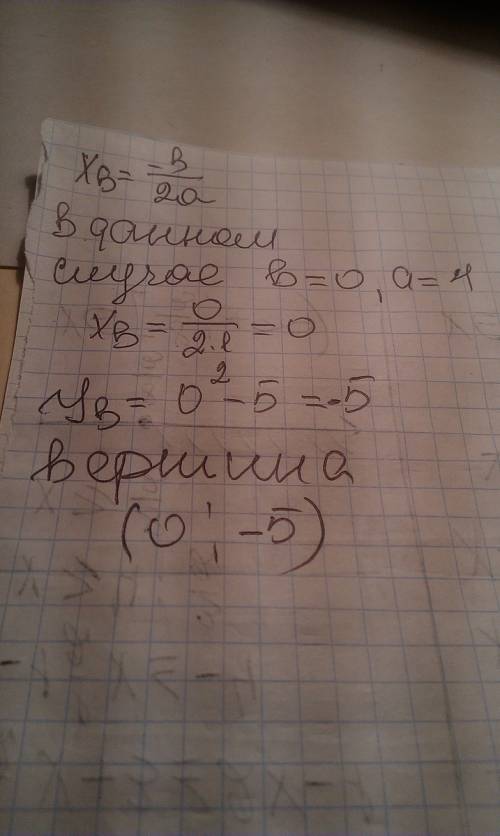 xв = -в/2a
в данном
случае в = 0, a = 1
xв = 0/2·1 = 0
yв = 0² - 5 = -5
вершина
(0 ; -5)